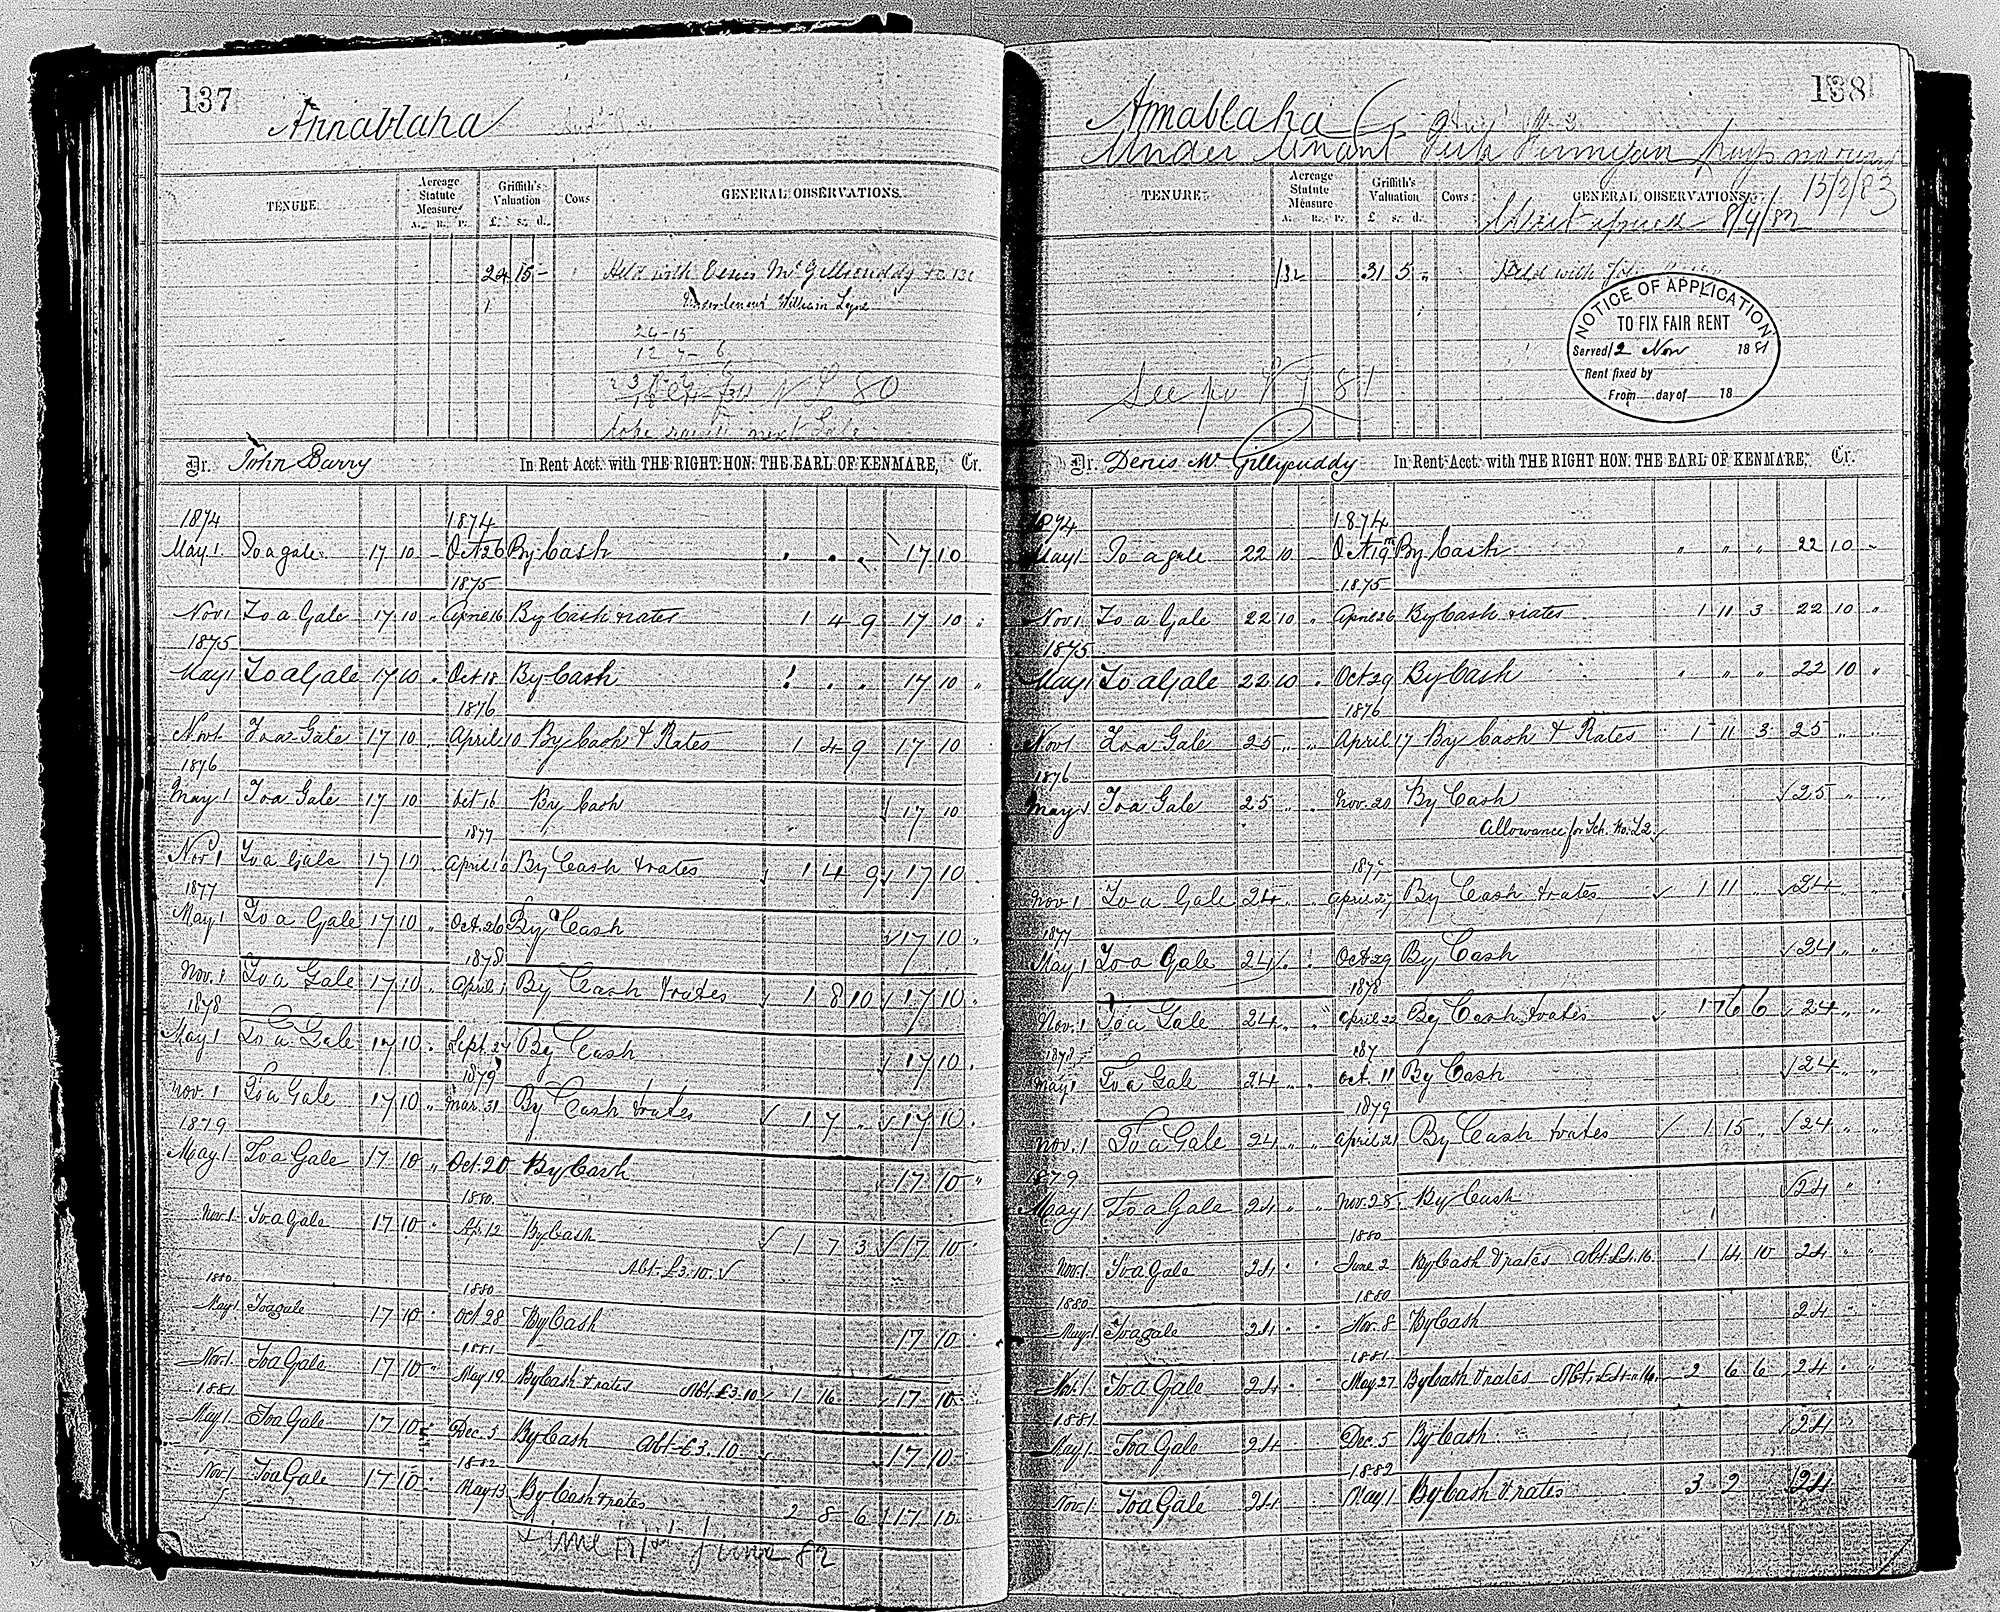 137
Annablaha
TENURE. Acreage Statute Measure A. R. P. Griffith's Valuation £ s. d. Cows GENERAL OBSERVATIONS.
24 15 - Held with Denis McGillicuddy
Undertenant William Lyne
24-15
12 7- 6
80
next Gale
Dr. John Barry In Rent Acct. with THE RIGHT HON: THE EARL OF KENMARE, Cr.
1874 1874
May 1 To a gale 17 10 - Oct 26 By Cash " " " 17 10
1875
Nov 1 To a Gale 17 10 " April 16 By Cash & rates 1 4 9 17 10 "
1875
May 1 To a Gale 17 10 " Oct 18 By Cash " " " 17 10 "
1876
Nov 1 To a Gale 17 10 " April 10 By Cash & Rates 1 4 9 17 10
1876
May 1 To a Gale 17 10 Oct 16 By Cash 17 10
1877
Nov 1 To a Gale 17 10 " April By Cash & rates 1 4 9 17 10
1877
May 1 To a Gale 17 10 " Oct. 26 By Cash 17 10 "
1878
Nov. 1 To a Gale 17 10 " April 1 By Cash & rates 1 8 10 17 10 "
1878
May 1 To a Gale 17 10 " Sept. 27 By Cash 17 10 "
1879
Nov. 1 To a Gale 17 10 " Mar. 31 By Cash & rates 1 7 " 17 10 "
1879
May 1 To a Gale 17 10 " Oct. 20 By Cash 17 10 "
1880
Nov. 1 To a Gale 17 10 " Ap. 12 By Cash 1 7 3 17 10 "
Abt. £3.10.
1880 1880
May 1 To a gale 17 10 " Oct. 28 By Cash 17 10 "
1881
Nov. 1 To a Gale 17 10 " May 19 By Cash & rates Abt. £3.10 1 16 17 10 "
1881
May 1 To a Gale 17 10 Dec. 5 By Cash Abt £3.10 17 10 "
1882
Nov. 1 To a Gale 17 10 " May 13 By Cash & rates 2 8 6 17 10 "
June 82
138
Annablaha
Under tenant Finnegan pays no rent
15/2/83
TENURE. Acreage Statute Measure A. R. P. Griffith's Valuation £ s. d. Cows GENERAL OBSERVATIONS.
8/4/82
132 31 5 " Held with John
NOTICE OF APPLICATION
TO FIX FAIR RENT
Served 12 Nov 1881
Rent fixed by
From day of 18
See 81
Dr. Denis McGillycuddy In Rent Acct. with THE RIGHT HON: THE EARL OF KENMARE, Cr.
1874 1874
May 1 To a gale 22 10 - Oct 19 By Cash " " " 22 10 -
1875
Nov 1 To a Gale 22 10 " April 26 By Cash & rates 1 11 3 22 10 "
1875
May 1 To a Gale 22 10 " Oct 29 By Cash " " " 22 10 "
1876
Nov 1 To a Gale 25 " " April 17 By Cash & Rates 1 11 3 25 " "
1876
May 1 To a Gale 25 " " Nov. 20 By Cash 25 " "
Allowance for Sch. Ho. £2.
1877
Nov 1 To a Gale 24 " " April 27 By Cash & rates 1 11 " 24 " "
1877
May 1 To a Gale 24 " " Oct 29 By Cash 24 " "
1878
Nov. 1 To a Gale 24 " " April 22 By Cash & rates 1 16 6 24 " "
1878 187
May 1 To a Gale 24 " " Oct. 11 By Cash 24 " "
1879
Nov. 1 To a Gale 24 " " April 21 By Cash & rates 1 15 " 24 " "
1879
May 1 To a Gale 24 " " Nov. 28 By Cash 24 " "
1880
Nov. 1 To a Gale 24 " " June 2 By Cash & rates abt. £4.16. 1 14 10 24 " "
1880 1880
May 1 To a gale 24 " " Nov. 8 By Cash 24 " "
1881
Nov. 1 To a Gale 24 " " May 27 By Cash & rates Abt. £4.16. 2 6 6 24 " "
1881
May 1 To a Gale 24 Dec. 5 By Cash 24
1882
Nov. 1 To a Gale 24 May 1 By Cash & rates 3 2 24